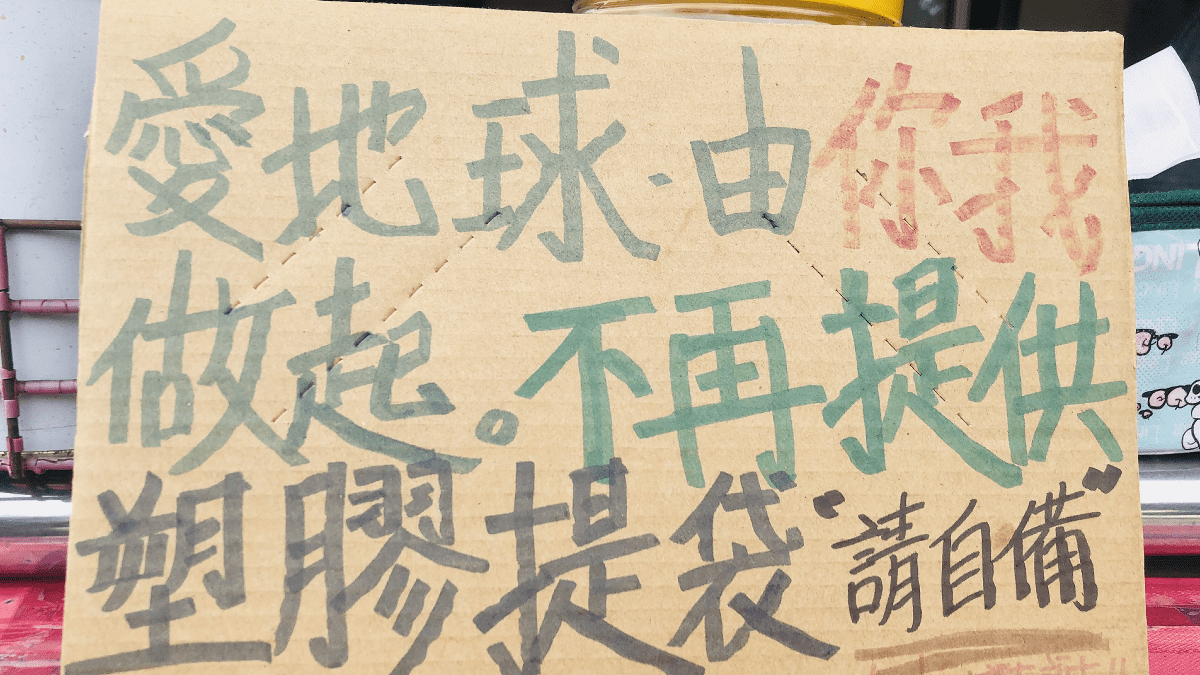 愛地球.由你我
做起。不再提供
塑膠提袋"請自備"